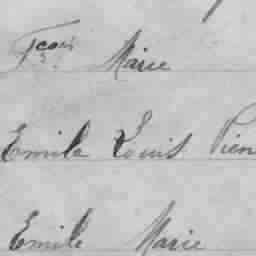 Fçois Marie
Emile Louis Pier
Emile Marie